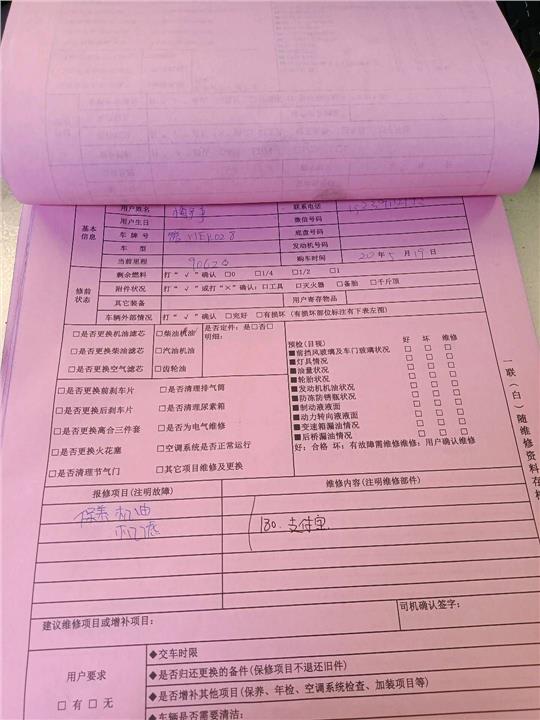 用户姓名 联系电话
基本信息 用户生日 微信号码
车 牌 号 底盘号码
车 型 发动机号码
当前里程 购车时间 20 年 5 月 19 日
修前状态 剩余燃料 打“√”确认 □0 □1/4 □1/2 □1
附件状况 打“√”或打“×”确认:□工具 □灭火器 □备胎 □千斤顶
其它装备 用户寄存物品
车辆外部情况 打“√”确认 □完好 □有损坏(有损坏部位标注有下表左图)
□是否更换机油滤芯 □柴油机油 是否定件:是□否□
明细:
□是否更换柴油滤芯 □汽油机油
□是否更换空气滤芯 □齿轮油
□是否更换前刹车片 □是否清理排气筒
□是否更换后刹车片 □是否清理尿素箱
□是否更换离合三件套 □是否为电气维修
□是否更换火花塞 □空调系统是否正常运行
□是否清理节气门 □其它项目维修及更换
预检(目视) 好 坏 维修
■前挡风玻璃及车门玻璃状况 □ □ □
■灯具情况 □ □ □
■油量状况 □ □ □
■轮胎状况 □ □ □
■发动机机油状况 □ □ □
■防冻防锈瓶状况 □ □ □
■制动液液面 □ □ □
■动力转向液液面 □ □ □
■变速箱漏油情况 □ □ □
■后桥漏油情况 □ □ □
好:合格 坏:有故障需维修维修:用户确认维修
报修项目(注明故障) 维修内容(注明维修部件)
保养 机油
机滤
180.支付宝
建议维修项目或增补项目: 司机确认签字:
用户要求
□ 有 □ 无
◆交车时限
◆是否归还更换的备件(保修项目不退还旧件)
◆是否增补其他项目(保养、年检、空调系统检查、加装项目等)
◆车辆是否需要清洁:
一联(白)随维修资料存